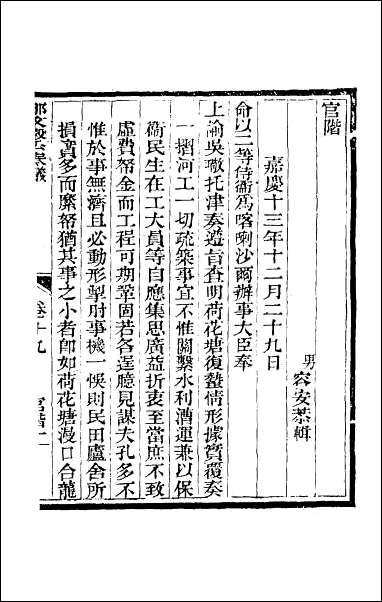 官階
男容安恭輯
嘉慶十三年十二月二十九日
命以二等侍衞爲喀喇沙爾辦事大臣奉
上諭吳璥托津奏遵旨查明荷花塘復蟄情形據實覆奏
一摺河工一切疏築事宜不惟關繫水利漕運兼以保
衞民生在工大員等自應集思廣益折衷至當庶不致
虛費帑金而工程可期鞏固若各逞臆見謀夫孔多不
惟於事無濟且必動形掣肘事機一悞則民田廬舍所
損實多而縻帑猶其事之小者卽如荷花塘漫口合龍
那文毅公奏議
卷十九
官階二